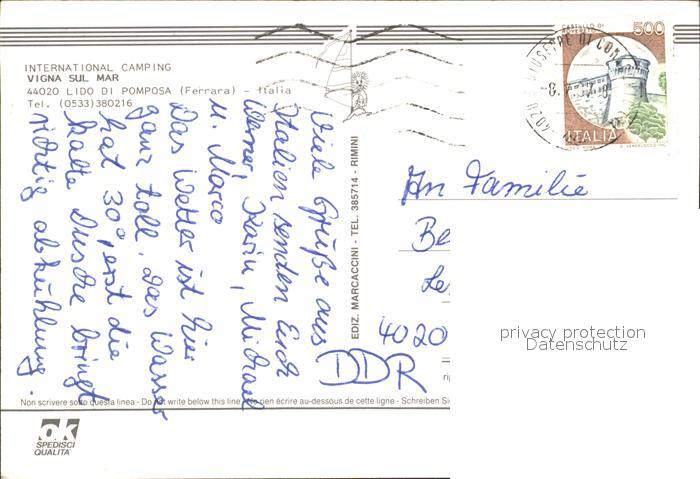 INTERNATIONAL CAMPING
VIGNA SUL MAR
44020 LIDO DI POMPOSA (Ferrara) - Italia
Tel. (0533)380216
Viele Grüße aus
Italien senden Euch
Werner, Karin, Michael
u. Marco
Das Wetter ist hier
ganz toll. Das Wasser
hat 30°, erst die
kalte Dusche bringt
richtig abkühlung.
EDIZ. MARCACCINI - TEL. 385714 - RIMINI
CASTELLO DI
500
ITALIA
An Familie
Be
Le
4020
DDR
privacy protection
Datenschutz
Non scrivere sotto questa linea - Do not write below this line - Ne rien écrire au-dessous de cette ligne - Schreiben Si
ok
SPEDISCI
QUALITA'